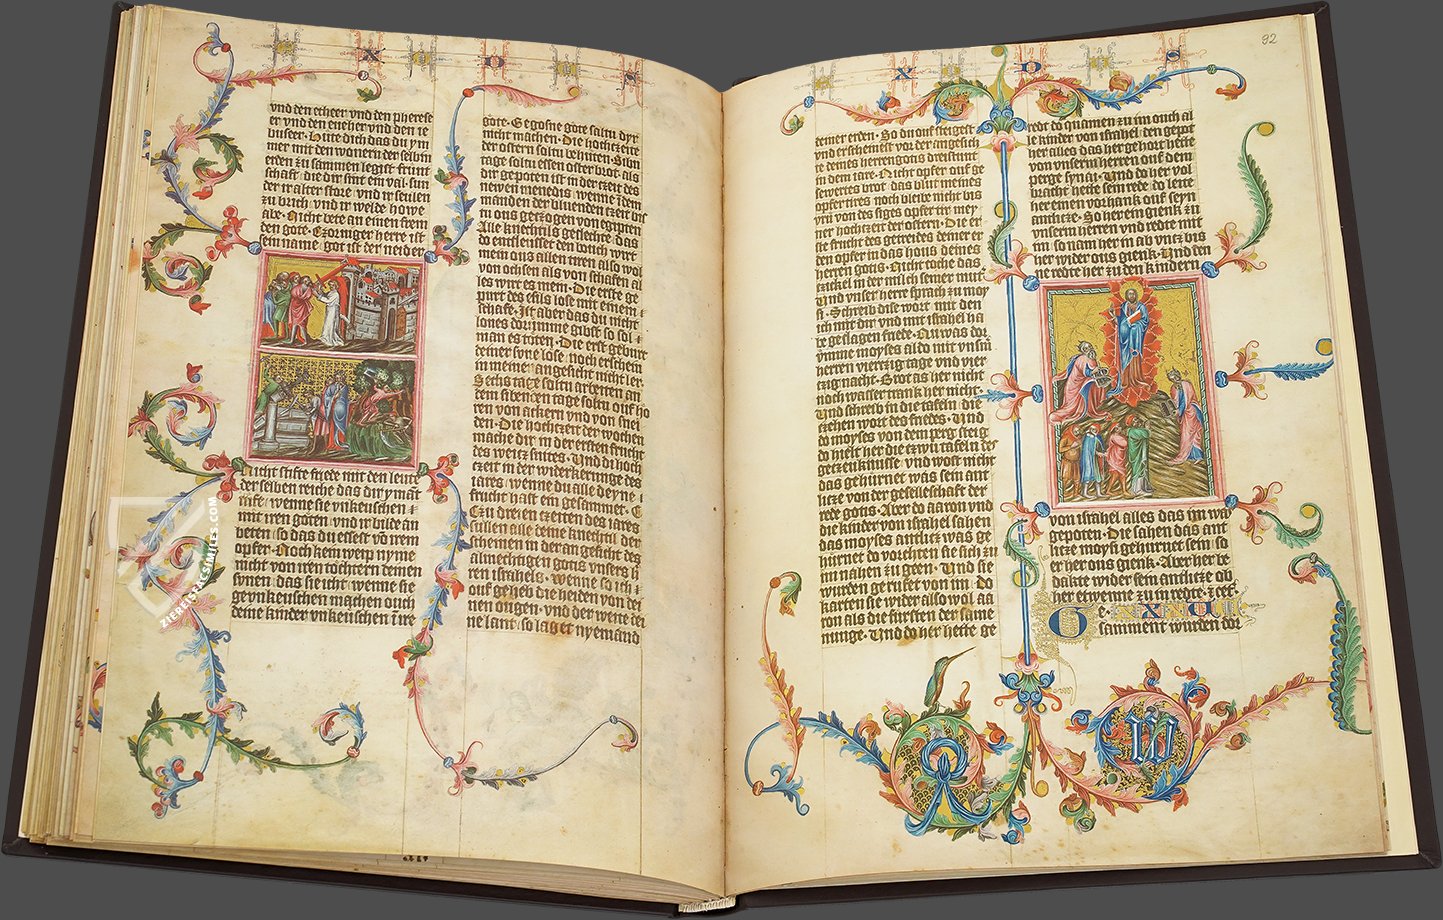 X U D U S
vnd den etheer vnd den pherese
er vnd den eueher vnd den ie
buseer · Hute dich das du ym
mer mit den wonern der selbin
erden zu sammen legist frunt
schaft die dir sint ein val · sun
der ir alter store vnd ir seulen
zu brich vnd ir welde howe
abe · Nicht bete an einen frem
den gote · Czorniger herre ist
sin name · got ist der neider
Nicht stifte friede mit den leuten
der selben reiche das du y mät
mit iren goten vnd ir bilde an
beten so das du essest vō irem
opfer · Noch kein weip nyme
nicht von iren tochtern deinen
synen das sie icht wenne sie
gevnkeuschen machen ouch
deine kinder vnkeuschen in ire
gote · Gegosne gote saltu dyr
nicht machen · Die hochczeit
der ostern saltu behuten · Sibin
tage saltu essen oster brot als
dir gepoten ist in der czeit des
newen menedis wenne in dem
manden der bluenden czeit bis
tu ens geczogen von egipten
Alle knechtlis geslechte das
do entslewsset den bouch wirt
mein ens allen iren also wol
von ochsen als von schafen al
les wirt es mein · Die erste ge
purt des esils lose mit einem
schafe · Ist aber das du nicht
lones dorumme gibst so sol
man es toten · Die erst geburt
deiner syne lose noch erschein
in meine angesicht nicht ler
Sechs tage saltu arbeiten an
dem sibenden tage saltu ouf ho
ren von ackern vnd von snei
den · Die hochczeit der wochen
mache dir in der ersten frucht
des weitz snites · Vnd di hoch
czeit in der widerkerunge des
iares wenne du alle deyne
frucht hast ein gesammet
Czu dreien czeiten des iares
sullen alle deine knechtel der
schemen in der angesicht des
almechtigen gotis vnsers h
ren israhels · Wenne so ich
ouf geheb die heiden von dei
nen ougen vnd der weite dei
ne lant so laget nyemand
X U D U S
92
deiner erden · So du ouf steigest
vnd erscheinest vor der angesich
te deines herren gotis dreistunt
in dem iare · Nicht opfer ouf ge
sewertes brot das blut meines
opfer tires noch bleibe nicht bis
vrü von des siges opfer tir mey
ner hochczeit der ostern · Die er
ste frucht des getreides deiner er
den opfer in das hous deines
herren gotis · Nicht koche das
czickel in der milch seiner mut
Vnd vnser herre sprach zu moy
si · Schreib dise wort mit den
ich mit dir vnd mit israhel ha
be geslagen friede · Do was dor
ymme moyses aldo mit vnsm
herren vierczig tage vnd vier
czig nacht · Brot as her nicht
noch wasser trank her nicht
Vnd schreib in die tafeln die
czehen wort des friedes · Vnd
do moyses von dem perg steig
do hielt her die czwu tafeln des
geczenknisse vnd wost nicht
das gehurnet was sein ant
litze von der geselleschaft der
rede gotis · Aber do aaron vnd
die kinder von israhel sahen
das moyses antlitz was ge
hurnet do vorchten sie sich zu
im nahen zu geen · Vnd sie
wurden geruffet von im do
karten sie wider also wol aa
ron als die fursten der same
nunge · Vnd do her hette ge
redt do quamen zu im ouch al
le kinder von israhel den gepot
her alles das her gehort hatte
von vnserm herren ouf dem
berge synay · Vnd do her vol
bracht hette sein rede do leite
her einen vorhank ouf seyn
antlitze · So her ein gienk zu
vnserm herren vnd redte mit
im so nam her in ab vntz bis
her wider ous gienk · Vnd do
her redte her zu den kindern
von israhel alles das im wa
gepoten · Die sahen das ant
litze moysi gehurnet sein so
er her ous gienk · Aber her be
dakte wider sein antlitze ab
her etwenne zu in redte
Ge · XXXV
samment wurden dor
W
ZIEREISFACSIMILES.COM